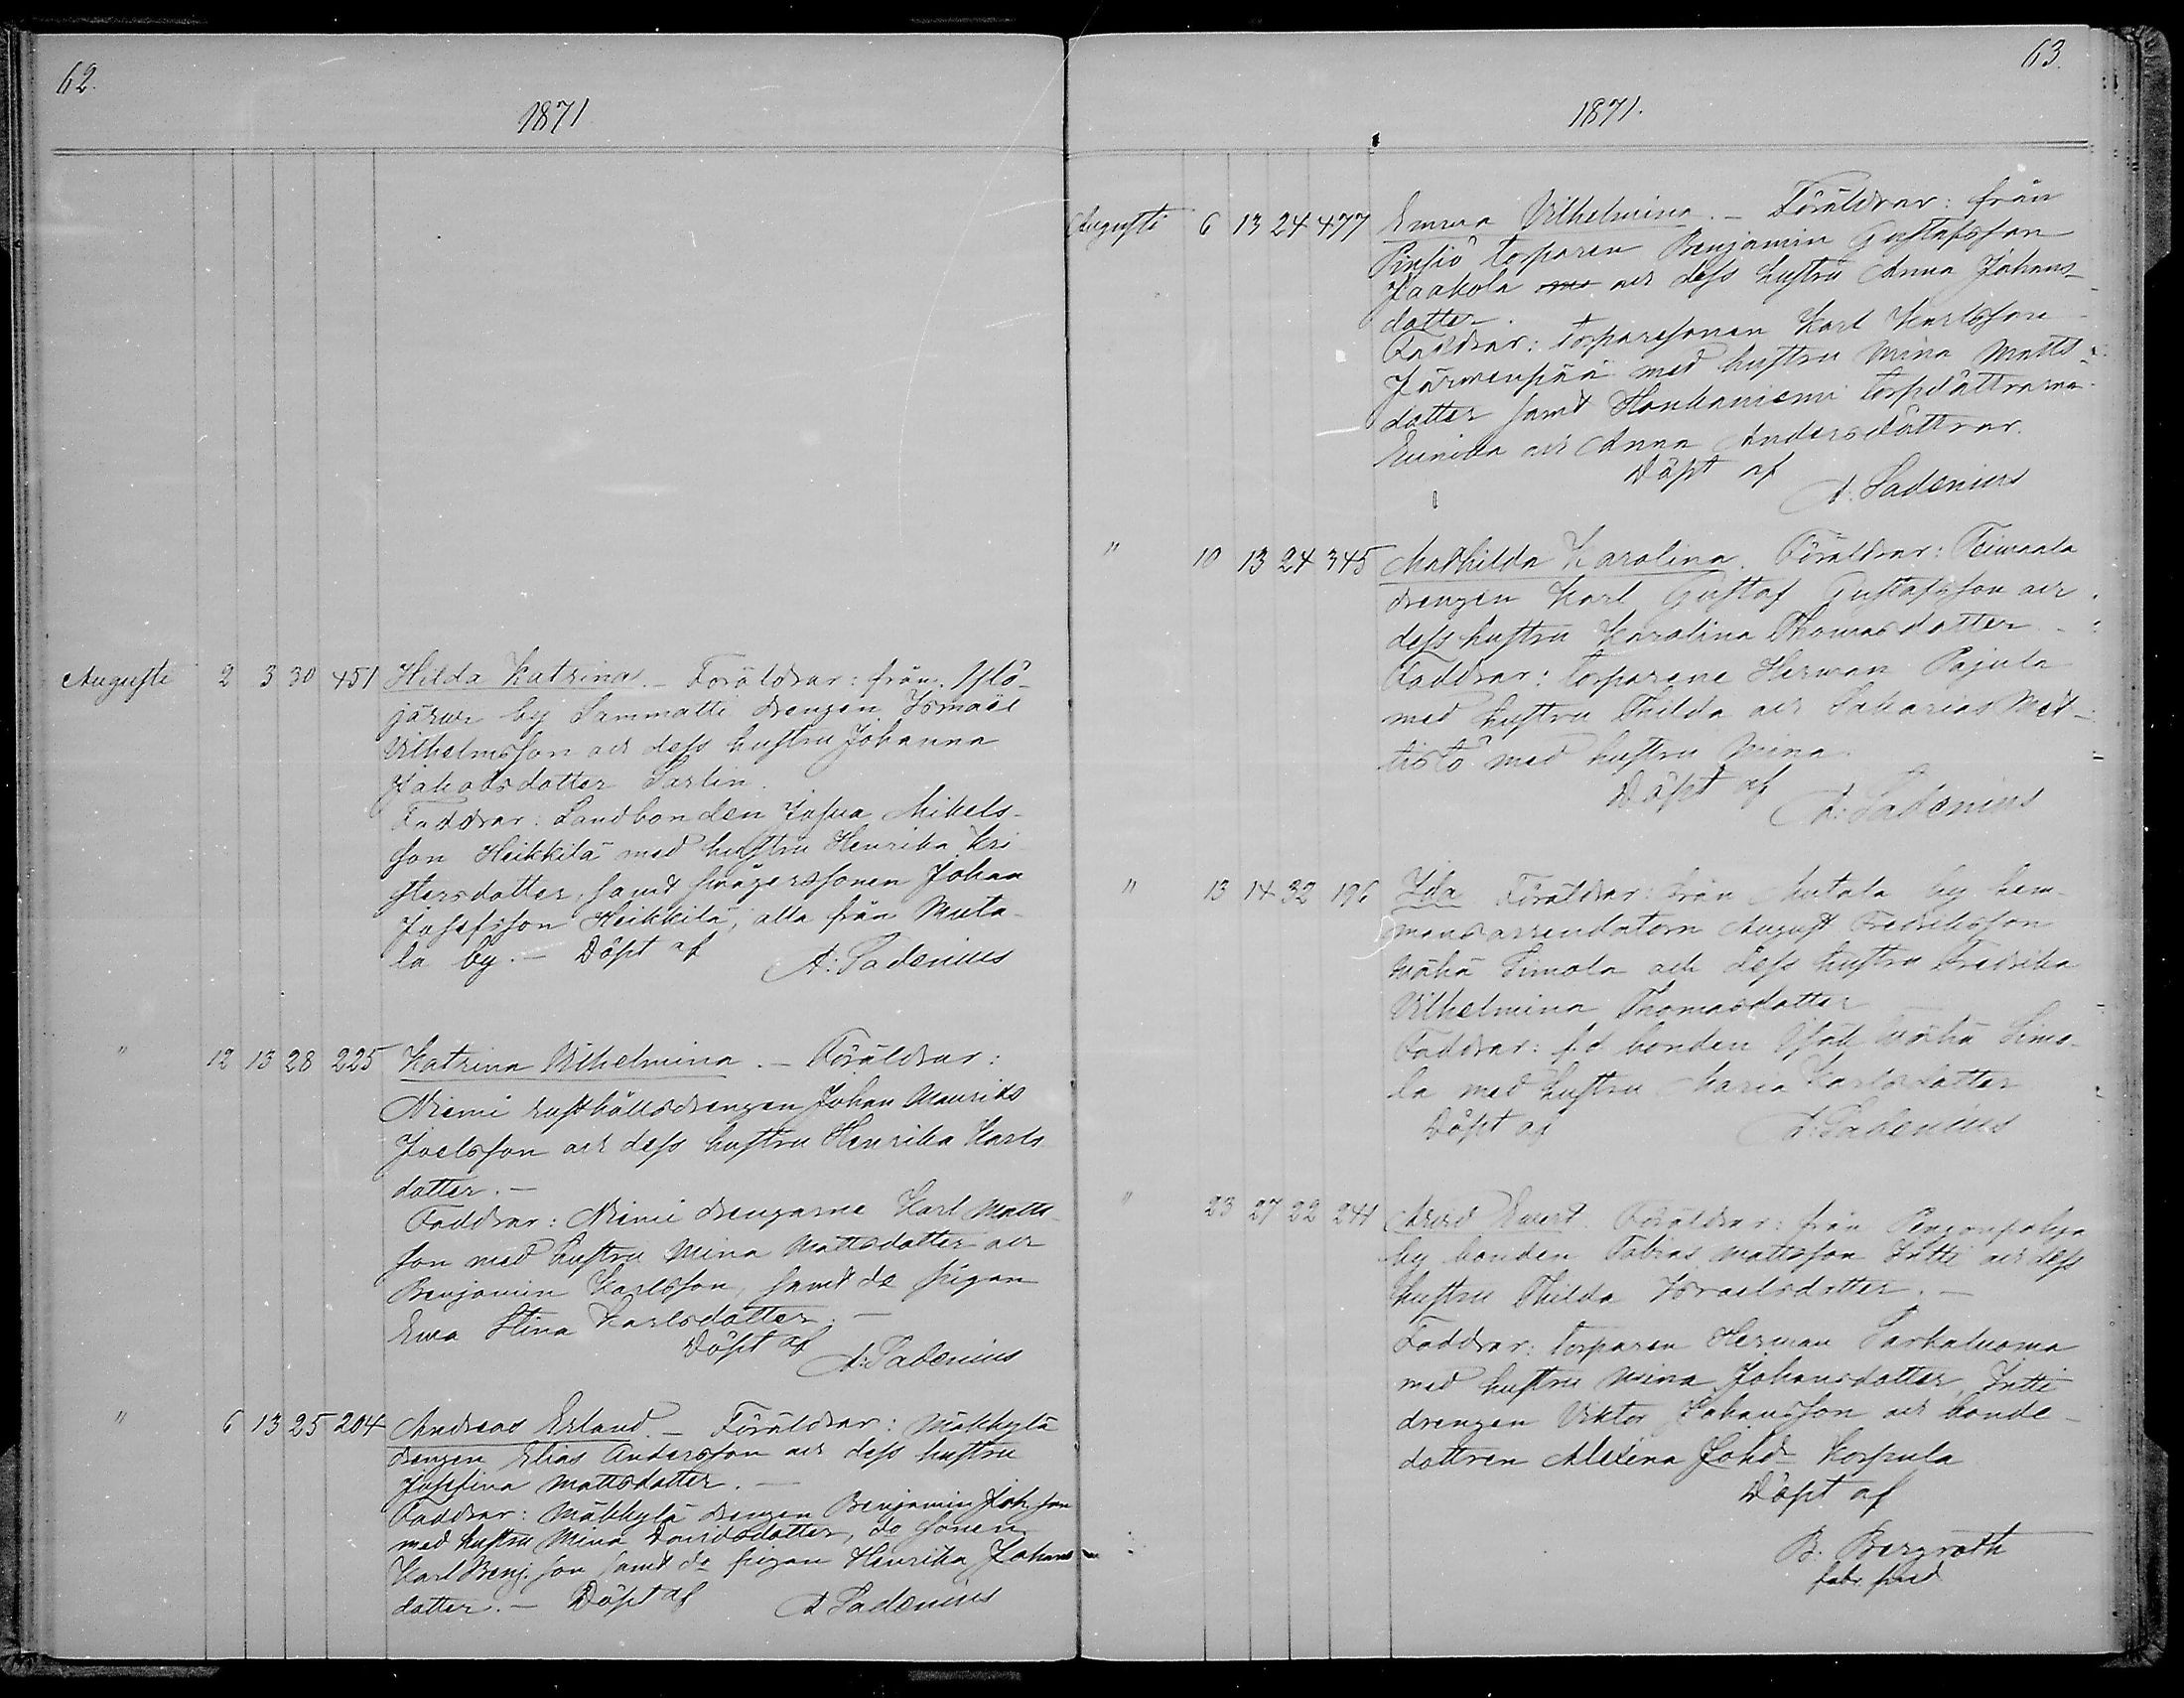 62.
1871
Augusti 2 3 30 451 Hilda Katrina. - Föräldrar: från Ylö-
järvi by Sammatti drengen Ismael
Vilhelmsson och dess hustru Johanna
Jakobsdotter Sarlin.
Faddrar: Landbonden Josua Mikels-
son Heikkilä med hustru Henrika Kri
stersdotter, samt svågerssonen Johan
Josefsson Heikkilä, alla från Muta-
la by. - Döpt af A. Sadenius
" 12 13 28 225 Katrina Vilhelmina. - Föräldrar:
Niemi rusthållsdrengen Johan Maurits
Joelsson och dess hustru Henrika Karls
dotter. -
Faddrar: Niemi drengarne Karl Matts
son med hustru Mina Mattsdotter och
Benjamin Karlsson, samt do pigan
Ewa Stina Karlsdotter. -
Döpt af A. Sadenius
" 6 13 25 204 Andreas Erland. - Föräldrar: Mäkkylä
drengen Elias Andersson och dess hustru
Josefina Mattsdotter. -
Faddrar: Mäkkylä drengen Benjamin Joh. son
med hustru Mina Davidsdotter, do sonen
Karl Benj. son samt do pigan Henrika Johans
dotter. - Döpt af A Sadenius
63.
1871.
Augusti 6 13 24 477 Emma Vilhelmina. - Föräldrar: från
Pinsiö torparen Benjamin Gustafsson
Jaakola och dess hustru Anna Johans-
dotter.
Faddrar: torparesonen Karl Karlsson
Järwenpää med hustru Mina Matts-
dotter samt Haukaniemi torpdöttrarna
Eunika och Anna Andersdöttrar.
Döpt af
A. Sadenius
" 10 13 24 345 Mathilda Karolina. Föräldrar: Teiwaala
drengen Karl Gustaf Gustafsson och
dess hustru Karolina Thomasdotter -
Faddrar: torparene Herman Pajula
med hustru Thilda och Sakarias Met-
tistö med hustru Mina.
Döpt af
A. Sadenius
" 13 14 32 196 Ida Föräldrar: från Mutala by hem-
mansarrendatorn August Fredriksson
Wähä Simola och dess hustru Fredrika
Vilhelmina Thomasdotter
Faddrar: f.d. bonden Isak Wähä Simo-
la med hustru Maria Karlsdotter
Döpt af A. Sadenius
" 23 27 22 241 Arvid Evert. Föräldrar: från Pengonpohja
by bonden Tobias Mattsson Intti och dess
hustru Thilda Israelsdotter. -
Faddrar: torparen Herman Sarkaluoma
med hustru Mina Johansdotter, Intti
drengen Viktor Johansson och bonde-
dottren Alexina Johd Korpula
Döpt af
B. Bergroth